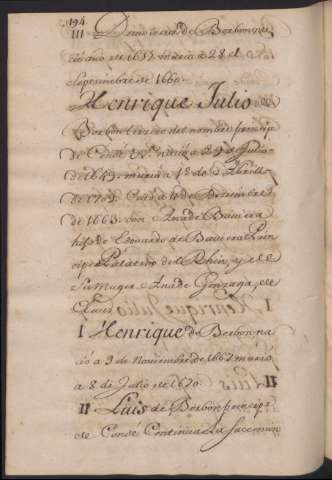 194
III de Borbon, na
cio año de 1657 murio a 28 de
Septiembre de 1660.
Henrique Julio
Borbon tercero del nombre Principe
de Condé nacio a 29 de Julio
de 1643. murio a 1º de Abrill
de 1709. Caso a 11 de Deziembre
de 1663. con Ana de Baviera
hija de Eduardo de Baviera Prin
cipe Palatino del Rhin, y de
su muger Ana de Gonzaga, de
I Henrique de Borbon na
cio a 3 de Noviembre de 1667 murio
a 8 de Julio de 1670.
II Luis de Borbon principe
de Condé Continua la